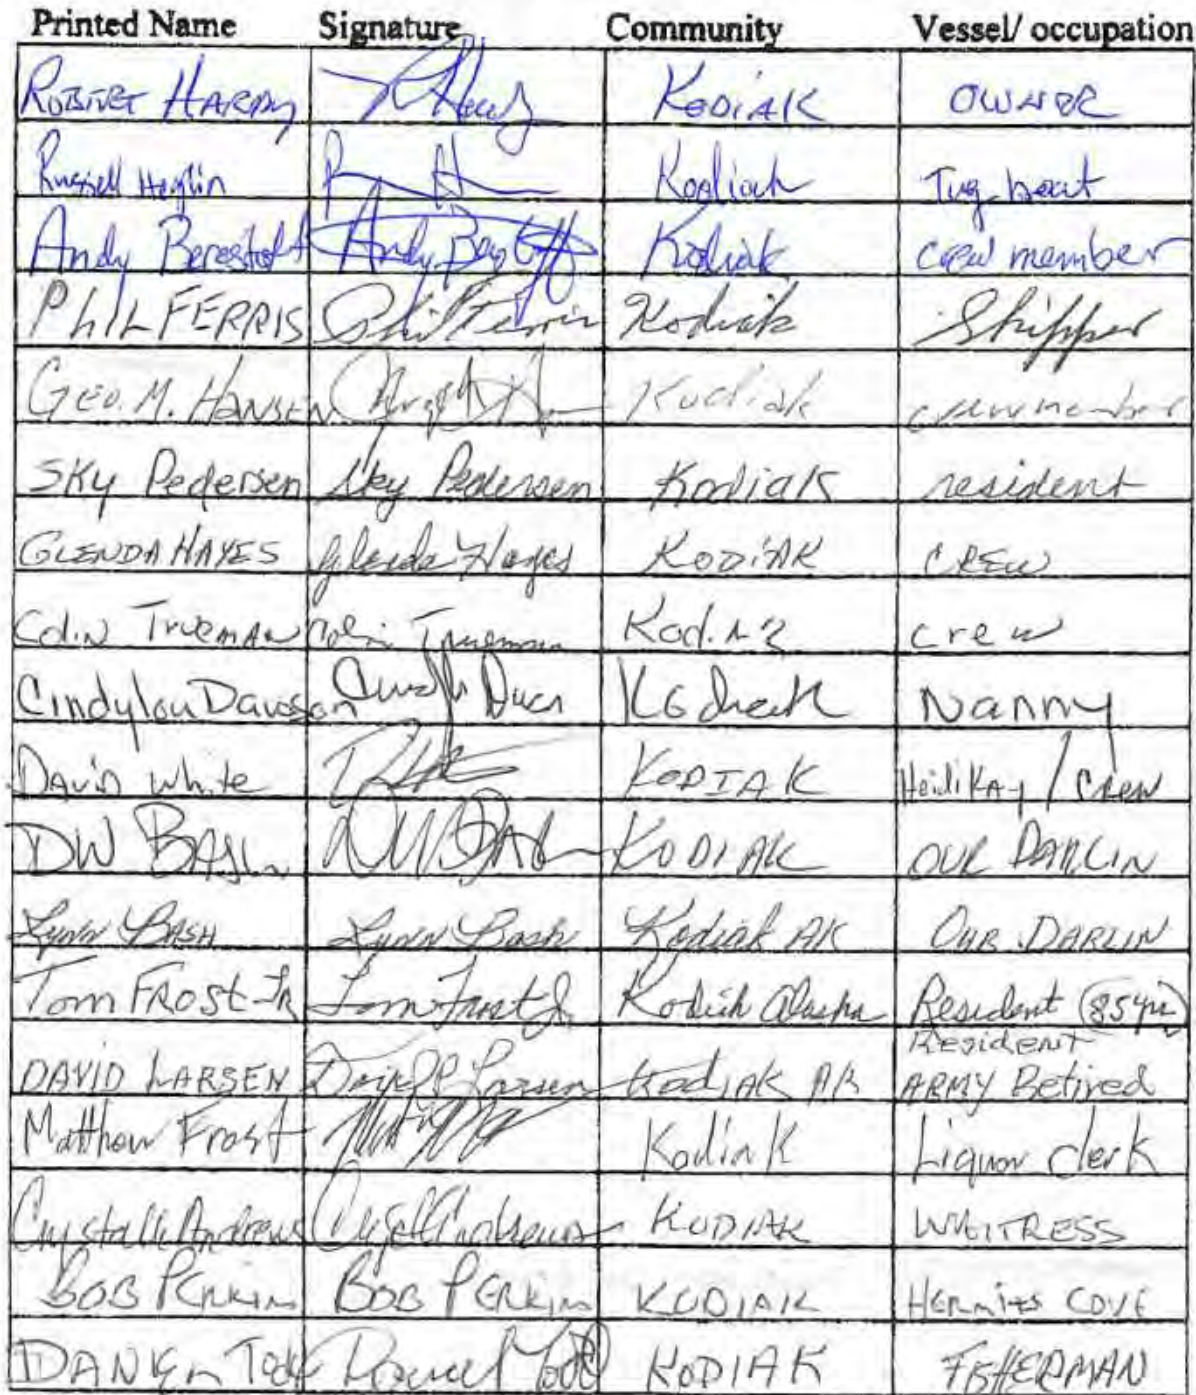 Printed Name Signature Community Vessel/ occupation
ROBERT HARDY Kodiak OWNER
Russell Heglin Kodiak Tug boat
Andy Berestoff Andy Kodiak crew member
PHIL FERRIS Phil Ferris Kodiak Skipper
GEO. M. HANSEN Kodiak crewmember
SKY Pedersen Sky Pedersen Kodiak resident
GLENDA HAYES Glenda Hayes KODIAK CREW
Colin Trueman Colin Trueman Kodiak crew
Cindylou Davison Kodiak Nanny
David White KODIAK Heidi Kay / Crew
DW BASH DW BASH KODIAK OUR DARLIN
Lynn BASH Lynn Bash Kodiak AK OUR DARLIN
Tom FROST JR Tom Frost Jr Kodiak Alaska Resident (85 yr)
Resident
DAVID LARSEN David Larsen Kodiak AK ARMY Retired
Matthew Frost Kodiak Liquor clerk
Andrews Andrews KODIAK WAITRESS
BOB PERKINS BOB PERKINS KODIAK HERMITS COVE
DANIEL TODD Daniel Todd KODIAK FISHERMAN